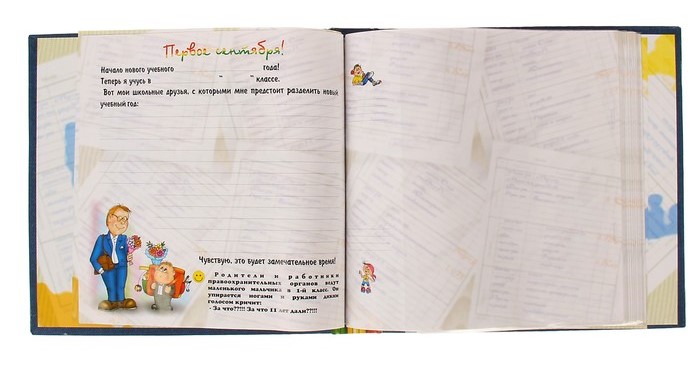 Первое сентября!
Начало нового учебного года!
Теперь я учусь в " " классе.
Вот мои школьные друзья, с которыми мне предстоит разделить новый
учебный год:
Чувствую, это будет замечательное время!
Родители и работники
правоохранительных органов ведут
маленького мальчика в 1-й класс. Он
упирается ногами и руками диким
голосом кричит:
- За что??!!! За что 11 лет дали??!!!